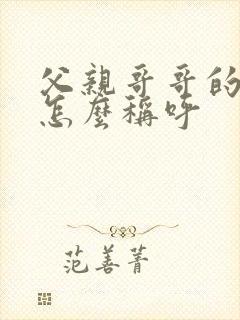 父親哥哥的
怎麼稱呼
范善菁